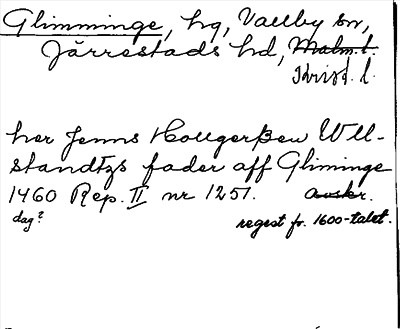 Glimminge, hg, Vallby sn,
Järrestads hd, Malm. l.
Krist. l.
her Jenns Hollgerßen Wll-
standtzs fader aff Gliminge
1460 Rep. II nr 1251. avskr.
dag? regest fr. 1600-talet.